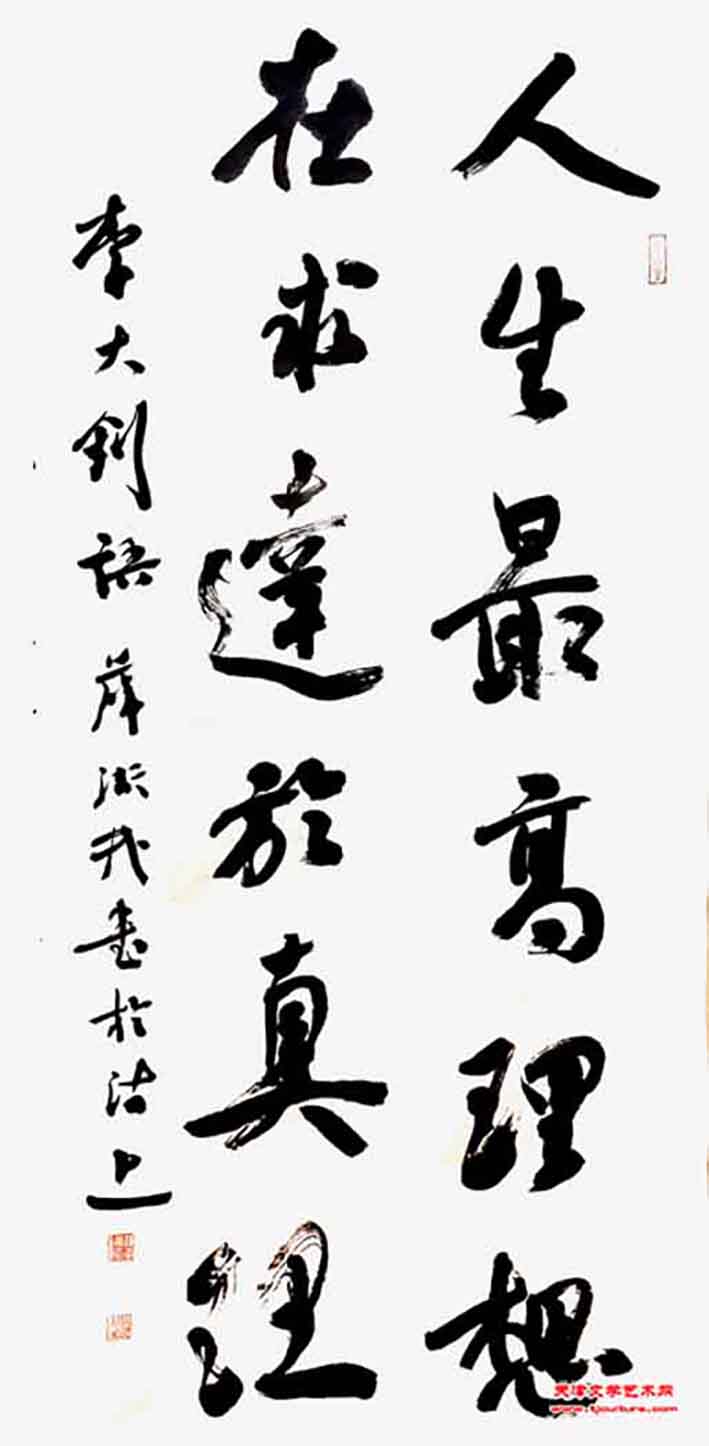 人生最高理想
在求達於真理
李大釗語 薛淑我書於沽上
天津文学艺术网
www.tjculture.com